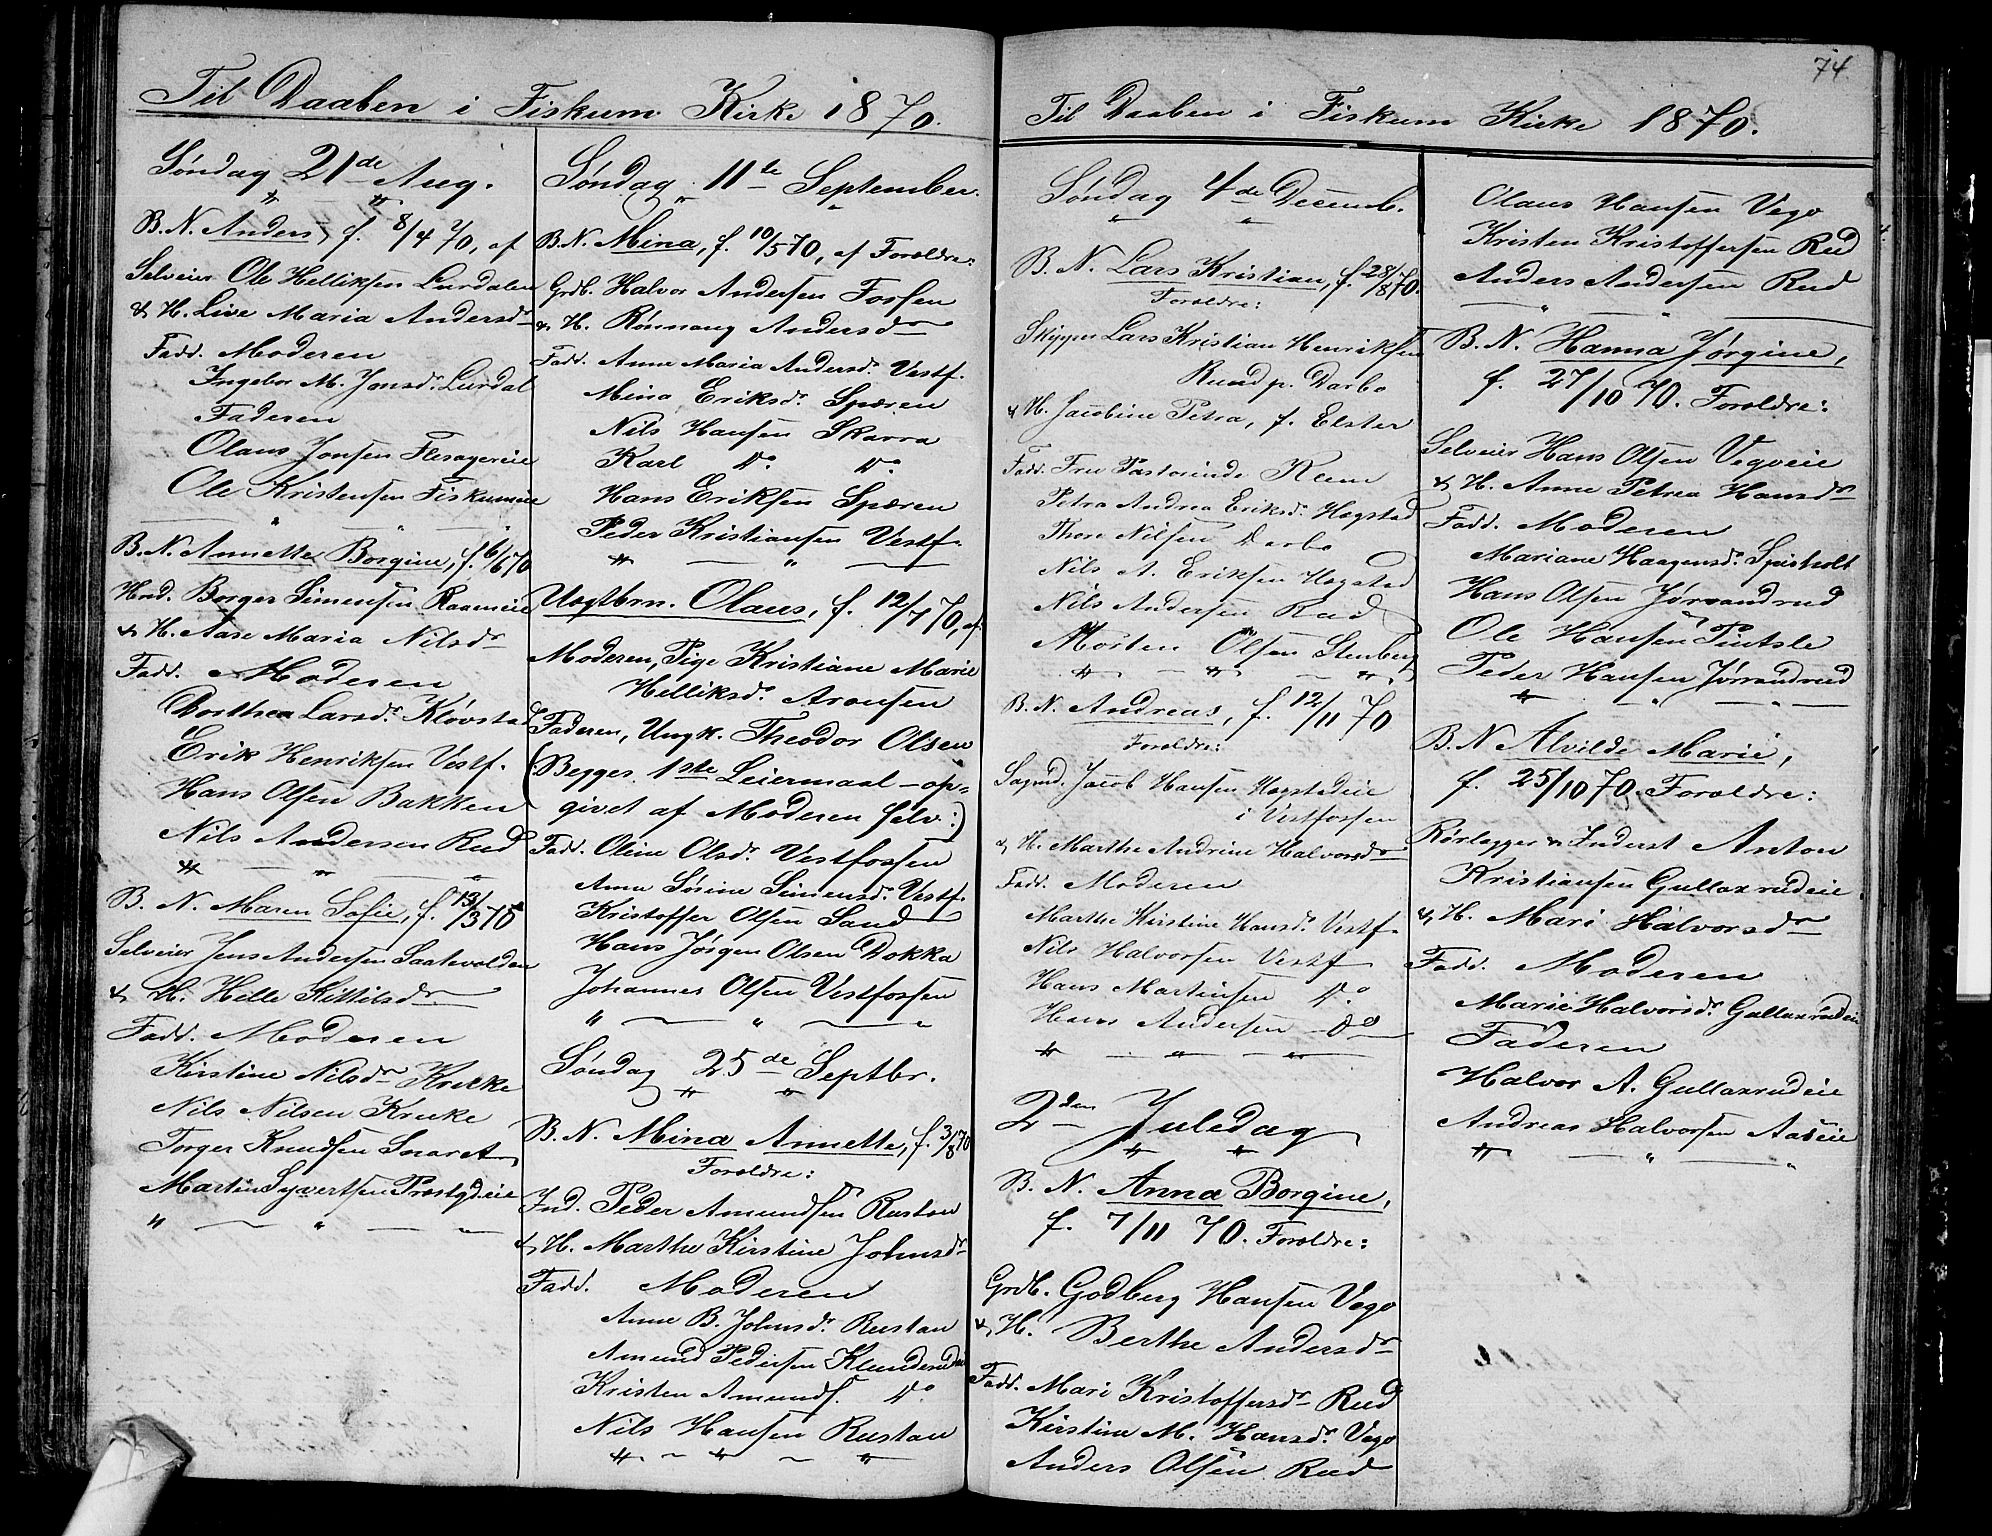 Til Daaben i Fiskum Kirke 1870.
Søndag 21de Aug.
B. N. Anders, f. 8/4 70, af
Selveier Ole Helliksen Lurdalen
& H. Live Maria Andersdr
Fadd. Moderen
Ingebor M. Jonsdr. Lurdal
Faderen
Olaus Jonsen Flesagereie
Ole Kristensen Fiskumeie
B. N. Annette Borgine, f. 6/6 70
Hmd. Borger Simensen Raaneeie
& H. Aase Maria Nilsdr
Fadd. Moderen
Dorthea Larsdr. Kløvstad
Erik Henriksen Vestf.
Hans Olsen Bakken
Nils Andersen Rud
B. N. Maren Sofie, f. 13/3 70
Selveier Jens Andersen Saatevolden
& H. Helle Kittilsdr
Fadd. Moderen
Kirstine Nilsdr Krekke
Nils Nilsen Krekke
Torger Knudsen Snaret
Martin Syvertsen Præstgdeie
Søndag 11te September.
B. N. Mina, f. 10/5 70, af Forældre:
Grdb. Halvor Andersen Fossen
& H. Rønnaug Andersdr
Fadd. Anne Maria Andersdr. Vestf.
Mina Eriksdr. Spæren
Nils Hansen Skarra
Karl Do. Do.
Hans Eriksen Spæren
Peder Kristiansen Vestf.
Uægtbrn. Olaus, f. 12/7 70, af
Moderen, Pige Kristiane Marie
Helliksdr. Aronsen
Faderen, Ungk. Theodor Olsen
(Begges 1ste Leiermaal – op=
givet af Moderen selv:)
Fadd. Oline Olsdr. Vestfossen
Anne Sørine Simensdr. Vestf.
Kristoffer Olsen Sand
Hans Jørgen Olsen Dokka
Johannes Olsen Vestfossen
Søndag 25de Septbr.
B. N. Mina Annette, f. 3/8 70
Forældre:
Ind. Peder Amundsen Rustan
& H. Marthe Kirstine Johnsdr
Fadd. Moderen
Anne B. Johnsdr. Rustan
Amund Pedersen Klunderudeie
Kristen Amunds. Do.
Nils Hansen Rustan
74
Til Daaben i Fiskum Kirke 1870.
Søndag 4de Decemb.
B. N. Lars Kristian, f. 28/8 70.
Forældre:
Skipper Lars Kristian Henriksen
Rund p. Darbo
& H. Jacobine Petra, f. Elster
Fadd. Fru Pastorinde Klem
Petra Andrea Eriksdr. Hogstad
Thore Nilsen Darbo
Nils A. Eriksen Hogstad
Nils Andersen Rud
Morten Olsen Stenberg
B. N. Andreas, f. 12/11 70
Forældre:
Sagmd. Jacob Hansen Hogstadeie
i Vestfossen
& H. Marthe Andrine Halvorsdr
Fadd. Moderen
Marthe Kirstine Hansdr. Vestf.
Nils Halvorsen Vestf
Hans Martinsen Do.
Hans Andersen Do
2den Juledag
B. N. Anna Borgine,
f. 7/11 70. Forældre:
Grdb. Godberg Hansen Vego
& H. Berthe Andersdr
Fadd. Mari Kristoffersdr Rud
Kirstine M. Hansdr. Vego
Anders Olsen Rud
Olaus Hansen Vego
Kristen Kristoffersen Rud
Anders Andersen Rud
B. N. Hanna Jørgine,
f. 27/10 70. Forældre:
Selveier Hans Olsen Vegveie
& H. Anne Petrea Hansdr
Fadd. Moderen
Mariane Haagensdr. Spistholt
Hans Olsen Jørrandrud
Ole Hansen Pintsle
Peder Hansen Jørrandrud
B. N. Alvilde Marie,
f. 25/10 70. Forældre:
Rørlægger & Inderst Anton
Kristiansen Gullaxrudeie
& H. Mari Halvorsdr
Fadd. Moderen
Marie Halvorsdr. Gullaxrudeie
Faderen
Halvor A. Gullaxrudeie
Andreas Halvorsen Aaseie